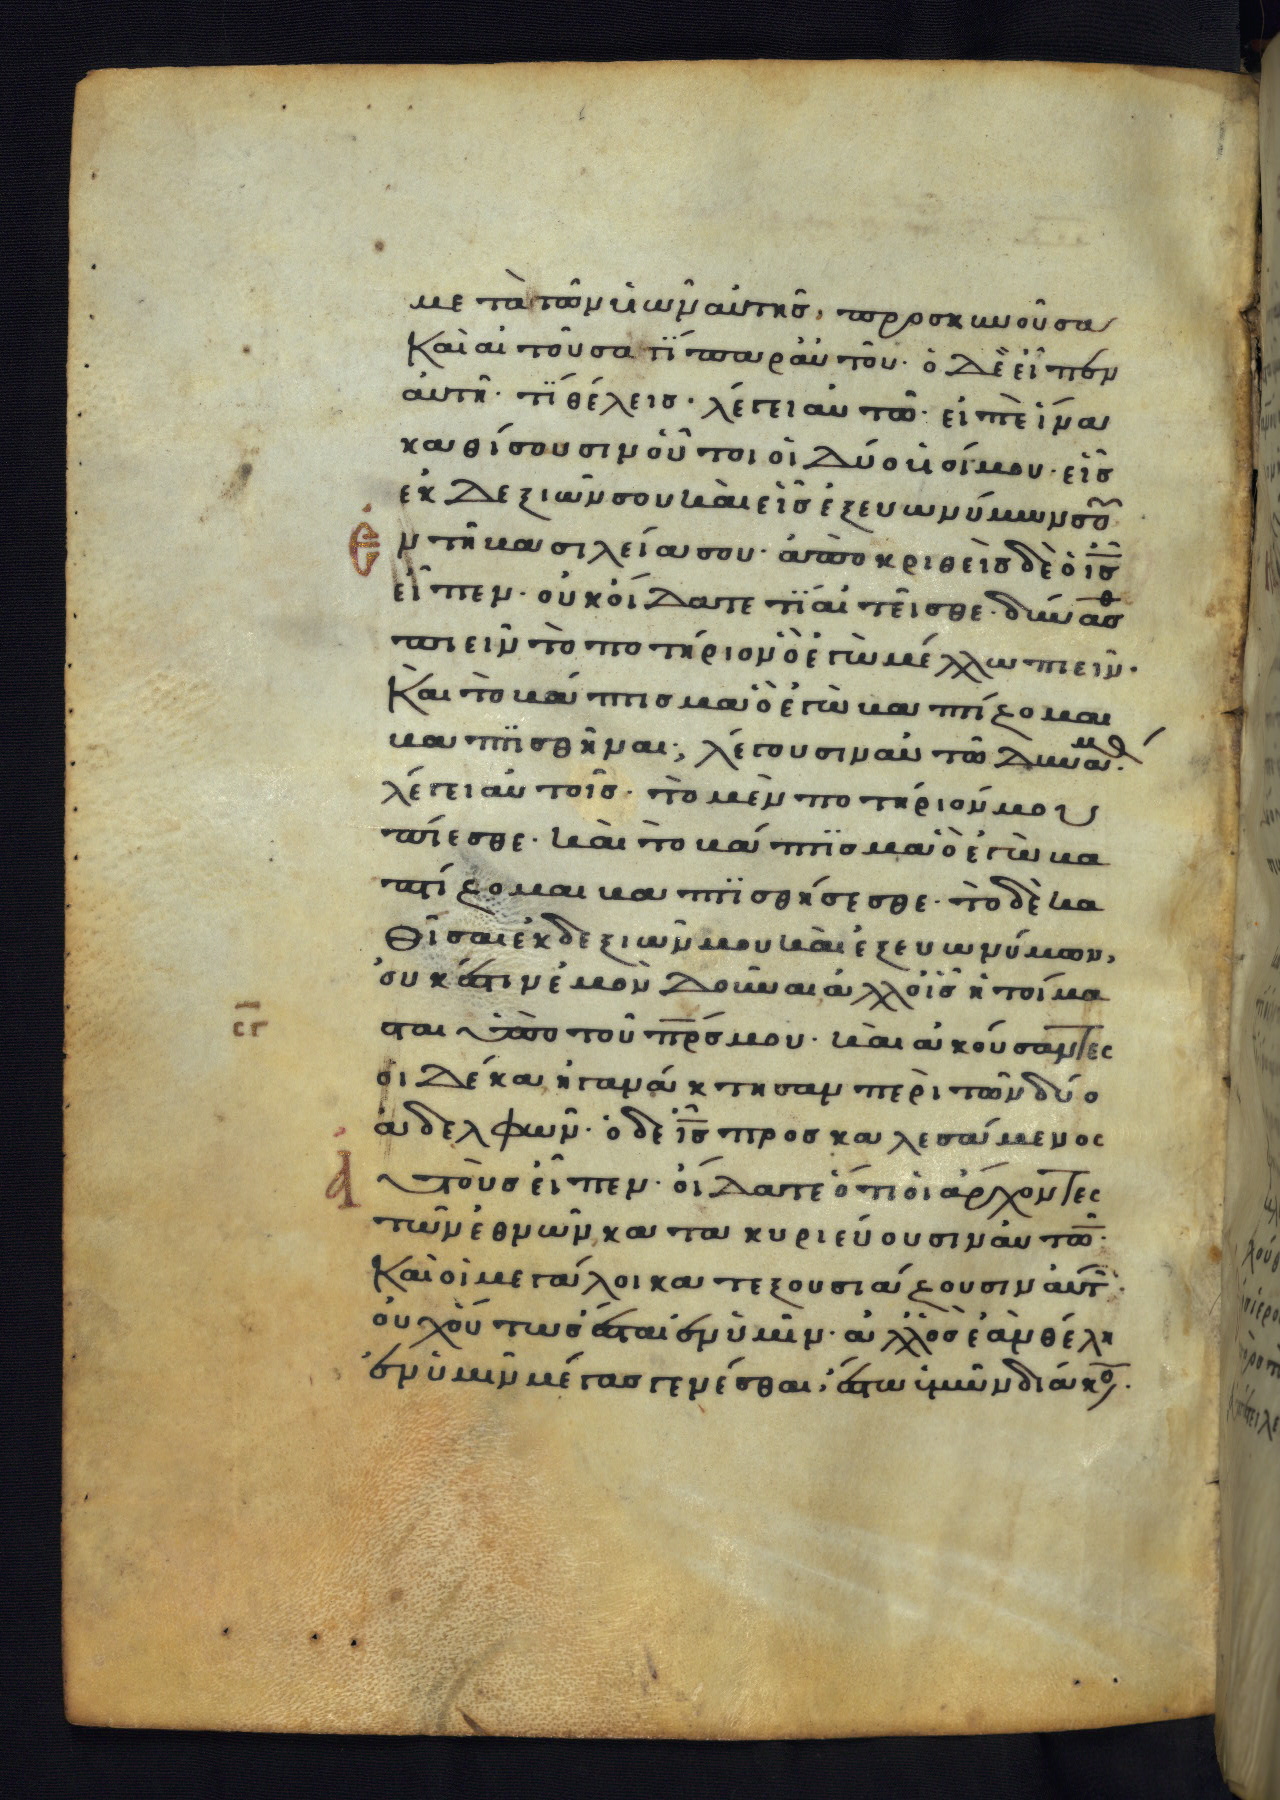 με τὰ τῶν ὑιῶν αὐτῆς, προσκυνοῦσα
Καὶ αἰτοῦσα τϊ παρ αὐτοῦ· ὁ Δὲ εἶπεν
ἀυτῆ· τί θέλεις· λέγει αὐτῶ· εἰπὲ ἵνα
καθίσουσιν οὗτοι οἱ Δύο ὑοί μου· εἷς
ἐκ Δεξιῶν σου καὶ εἷς ἐξ ευωνύμων σου
Ἐν τῆ βασιλεία σου· ἀποκριθεὶς δὲ ὁ ι̅ς̅
εἶπεν· οὐκ οἴΔατε τί αἰτεῖσθε· δύνασθ
πιεῖν τὸ ποτήριον ὃ ἐγὼ μέλλω πιεῖν·
Καὶ τὸ βάπτισμα ὃ ἐγὼ βαπτίζομαι
βαπτϊσθῆναι; λέγουσιν αὐτῶ Δυνάμθ·
λέγει αὐτοῖς· τὸ μὲν ποτήριόν μου
πίεσθε· καὶ τὸ βάπτϊσμα ὃ ἐγὼ βα
πτίζομαι βαπτϊσθήσεσθε· τὸ δὲ κα
Θῖσαι ἐκ δεξιῶν μου καὶ ἐξ ευωνύμων,
ὀυκ ἔστιν ἐμὸν Δοῦναι ἀλλ οἷς ἡτοίμα
σ̅γ̅ σται ὑπὸ τοῦ π̅ρ̅ς̅ μου· καὶ ἀκούσαντες
οι Δέκα ἠγανάκτησαν περὶ τῶν δύο
ἀδελφῶν· ὁ δε ι̅ς̅ προσκαλεσάμενος
ἀυτοὺς εἶπεν· οἴΔατε ὅτι οἱ ἄρχοντες
τῶν ἐθνῶν κατακυριεύουσιν αὐτῶ·
Καὶ οἱ μεγάλοι κατεξουσιάζουσιν ἀυτ·
ὀυχ οὕτως ἔσται ἐν ὑμῖν· ἀλλ ὃς ἐὰν θέλη
ἐν ὑμῖν μέγας γενέσθαι, ἔστω ὑμῶν διάκο·